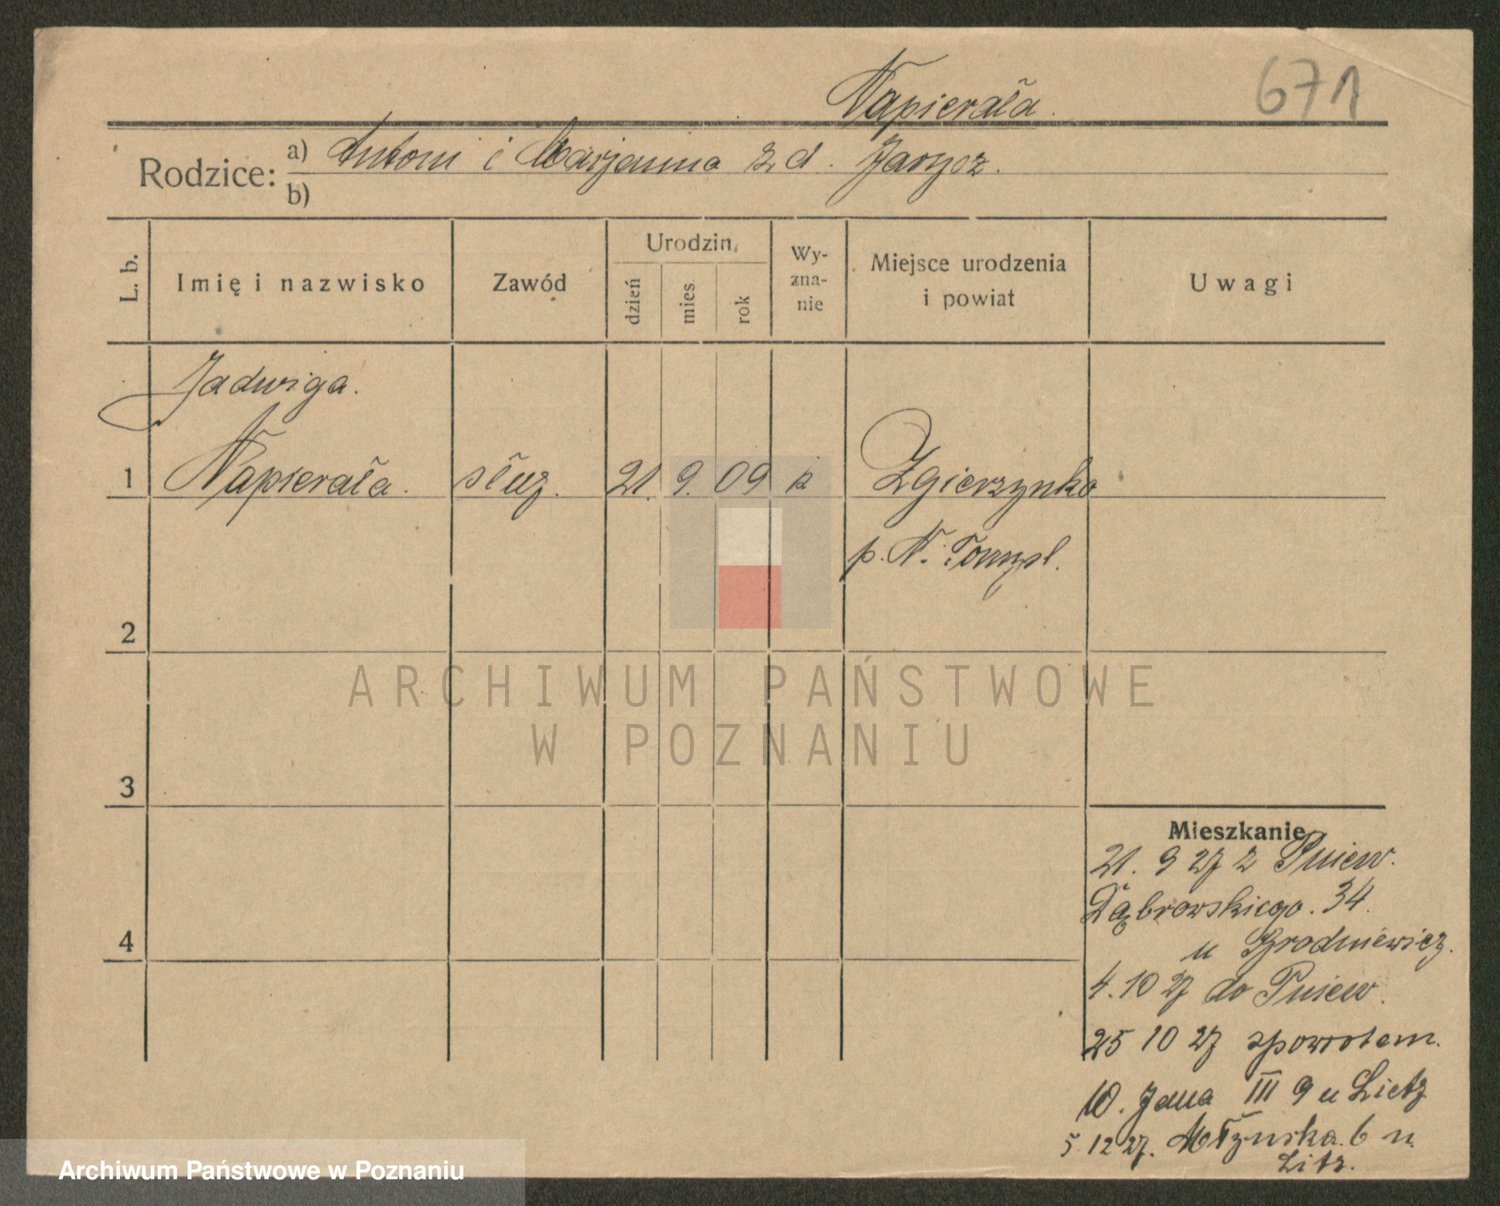 Napierała.
671
Rodzice: a) Antoni i Marjanna z d. Jarysz.
b)
L. b.
Imię i nazwisko
Zawód
Urodzin.
dzień
mies
rok
Wy-
zna-
nie
Miejsce urodzenia
i powiat
Uwagi
Jadwiga.
1 Napierała. służ. 21. 9. 09 k Zgierzynko
p. N. Tomysl.
2
3
4
ARCHIWUM PAŃSTWOWE
W POZNANIU
Mieszkanie
21. 9 27 z Pniew.
Dąbrowskiego. 34.
u Grodniewicz.
4. 10 27 do Pniew.
25 10 27 spowrotem.
10. Jana III 9 u Lietz
5 12 27. Młyńska. 6 u
Litz.
Archiwum Państwowe w Poznaniu